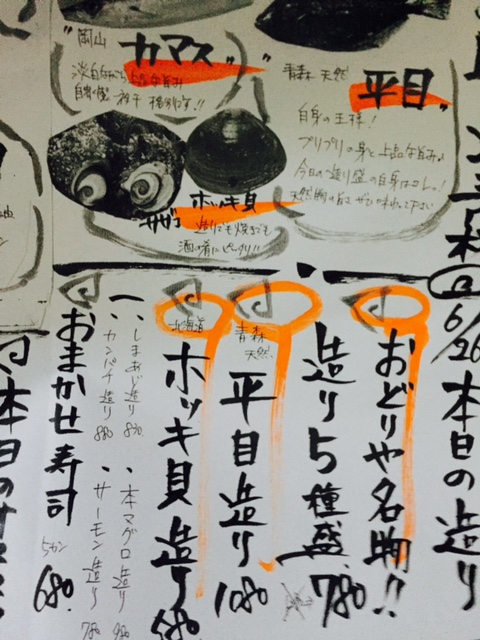 岡山
カマス
淡白ながら上品な旨み
青森 天然
平目
白身の王様！
プリプリの身と上品な旨み
今日の造り盛の白身はコレ！
サザエ
ホッキ貝
造りでも焼きでも
酒の肴にピッタリ!!
6/26
本日の造り
おどりや名物!!
造り5種盛
780
青森
天然
平目造り
1080
北海道
ホッキ貝造り
680
・しまあじ造り 830
・カンパチ造り 880
・本マグロ造り 980
・サーモン造り 780
おまかせ寿司
5カン
680
本日の